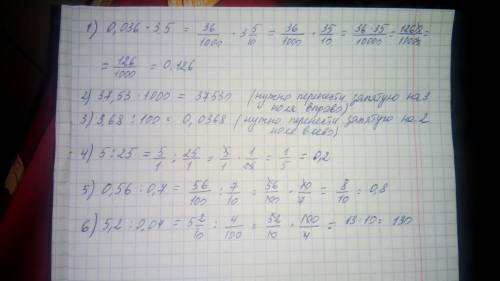 1) 0,036 · 3,5 = 36/1000 · 3 5/10 = 36/1000 · 35/10 = 36·35/10000 = 1260/10000 =
= 126/1000 = 0,126
2) 37,53 · 1000 = 37530 (нужно перенести запятую на 3
поля вправо)
3) 3,68 : 100 = 0,0368 (нужно перенести запятую на 2
поля влево)
4) 5 : 25 = 5/1 : 25/1 = 5/1 · 1/25 = 1/5 = 0,2
5) 0,56 : 0,7 = 56/100 : 7/10 = 56/100 · 10/7 = 8/10 = 0,8
6) 5,2 : 0,04 = 5 2/10 : 4/100 = 52/10 · 100/4 = 13·10 = 130